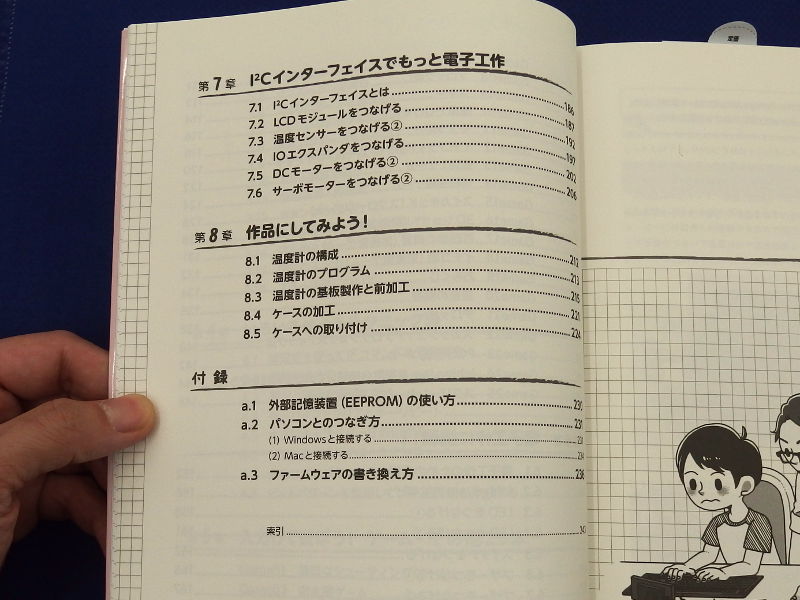 定価
第7章 I²Cインターフェイスでもっと電子工作
7.1 I²Cインターフェイスとは 186
7.2 LCDモジュールをつなげる 187
7.3 温度センサーをつなげる② 192
7.4 IOエクスパンダをつなげる 197
7.5 DCモーターをつなげる② 202
7.6 サーボモーターをつなげる② 206
第8章 作品にしてみよう！
8.1 温度計の構成 212
8.2 温度計のプログラム 213
8.3 温度計の基板製作と前加工 216
8.4 ケースの加工 221
8.5 ケースへの取り付け 224
付録
a.1 外部記憶装置（EEPROM）の使い方 230
a.2 パソコンとのつなぎ方 231
(1) Windowsと接続する 231
(2) Macと接続する 234
a.3 ファームウェアの書き換え方 236
索引